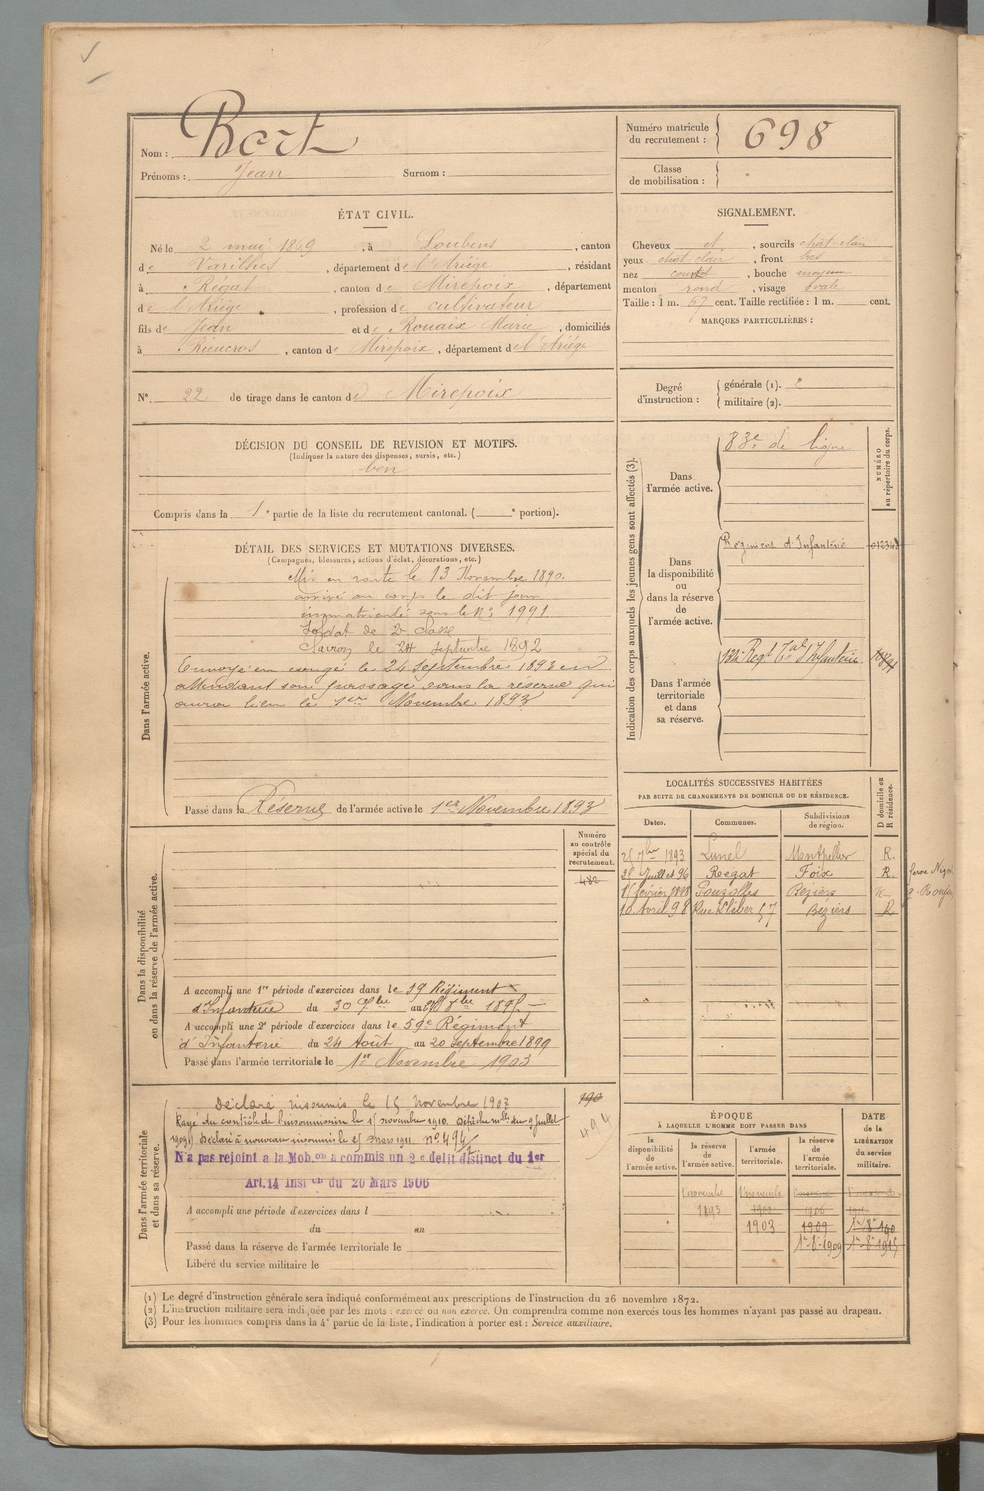 Nom : Bort
Prénoms : Jean Surnom :
Numéro matricule du recrutement : 698
Classe de mobilisation :
ÉTAT CIVIL.
Né le 2 mai 1869, à Loubens, canton
de Varilhes, département de l'Ariège, résidant
à Régat, canton de Mirepoix, département
de l'Ariège, profession de cultivateur
fils de Jean et de Rouaix Marie, domiciliés
à Rieucros, canton de Mirepoix, département de l'Ariège
N° 22 de tirage dans le canton de Mirepoix
SIGNALEMENT.
Cheveux et, sourcils chât-clair
yeux chât. clair, front bas
nez court, bouche moyenne
menton rond, visage ovale
Taille : 1 m. 67 cent. Taille rectifiée : 1 m. cent.
MARQUES PARTICULIÈRES :
Degré d'instruction :
générale (1).
militaire (2).
DÉCISION DU CONSEIL DE REVISION ET MOTIFS.
(Indiquer la nature des dispenses, sursis, etc.)
bon
Compris dans la 1e partie de la liste du recrutement cantonal. ( e portion).
DÉTAIL DES SERVICES ET MUTATIONS DIVERSES.
(Campagnes, blessures, actions d'éclat, décorations, etc.)
Dans l'armée active.
Mis en route le 13 Novembre 1890.
arrivé au corps le dit jour
immatriculé sous le N° 1991
Soldat de 2e Classe
le 24 septembre 1892
Envoyé en congé le 24 Septembre 1893 en
attendant son passage dans la réserve qui
aura lieu le 1er Novembre 1893
Passé dans la Réserve de l'armée active le 1er Novembre 1893
Indication des corps auxquels les jeunes gens sont affectés (3).
NUMÉRO au répertoire du corps.
Dans l'armée active.
83e de ligne
Dans la disponibilité ou dans la réserve de l'armée active.
Régiment d'Infanterie
Dans l'armée territoriale et dans sa réserve.
Regt Tal d'Infanterie
LOCALITÉS SUCCESSIVES HABITÉES
PAR SUITE DE CHANGEMENTS DE DOMICILE OU DE RÉSIDENCE.
Dates. Communes. Subdivisions de région. D domicile ou R résidence.
25 7bre 1893 Lunel Montpellier R.
28 Juillet 96 Regat Foix R.
1er février 1898 Pouzolles Béziers R
10 Avril 98 Rue Kléber 57 Béziers R
Dans la disponibilité ou dans la réserve de l'armée active.
Numéro au contrôle spécial du recrutement.
482
A accompli une 1re période d'exercices dans le 19 Régiment
d'Infanterie du 30 7bre au 1895
A accompli une 2e période d'exercices dans le 59e Régiment
d'Infanterie du 24 Août au 20 Septembre 1899
Passé dans l'armée territoriale le 1er Novembre 1903
Dans l'armée territoriale et dans sa réserve.
Déclaré insoumis le 15 Novembre 1907
Rayé du contrôle de l'insoumission le 15 novembre 1910. Dépêche mlle du 9 juillet
1909) Déclaré à nouveau insoumis le 25 mars 1911. N° 494/2
N'a pas rejoint a la Mob.on a commis un 2e delit distinct du 1er
Art.14 Inst on du 20 Mars 1906
190
494
A accompli une période d'exercices dans l
du au
Passé dans la réserve de l'armée territoriale le
Libéré du service militaire le
ÉPOQUE
À LAQUELLE L'HOMME DOIT PASSER DANS
la disponibilité de l'armée active.
la réserve de l'armée active.
l'armée territoriale.
la réserve de l'armée territoriale.
DATE de la LIBÉRATION du service militaire.
1 novembre 1 novembre
1893 1900 1906
1903 1909
1er-8e-1909 1er-8e-1915
(1) Le degré d'instruction générale sera indiqué conformément aux prescriptions de l'instruction du 26 novembre 1872.
(2) L'instruction militaire sera indiquée par les mots : exercé ou non exercé. On comprendra comme non exercés tous les hommes n'ayant pas passé au drapeau.
(3) Pour les hommes compris dans la 4e partie de la liste, l'indication à porter est : Service auxiliaire.